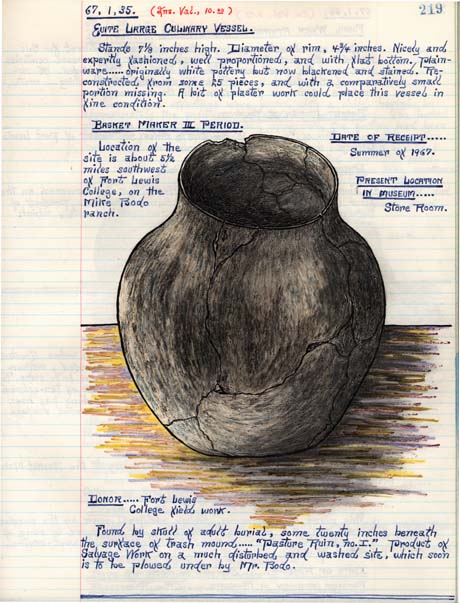 67.1.35. (Ins. Val., 10.00)
219
Quite Large Culinary Vessel.
Stands 7½ inches high. Diameter of rim, 4¾ inches. Nicely and
expertly fashioned, well proportioned, and with flat bottom. Plain-
ware..... originally white pottery but now blackened and stained. Re-
constructed from some 25 pieces, and with a comparatively small
portion missing. A bit of plaster work could place this vessel in
fine condition.
Basket Maker III Period.
Location of the
site is about 5½
miles southwest
of Fort Lewis
College, on the
Mike Bodo
ranch.
Date of Receipt.....
Summer of 1967.
Present Location
in Museum.....
Store Room.
Donor..... Fort Lewis
College field work.
Found by skull of adult burial, some twenty inches beneath
the surface of trash mound..... "Pasture Ruin, no. I." Product of
Salvage Work on a much disturbed and washed site, which soon
is to be plowed under by Mr. Bodo.